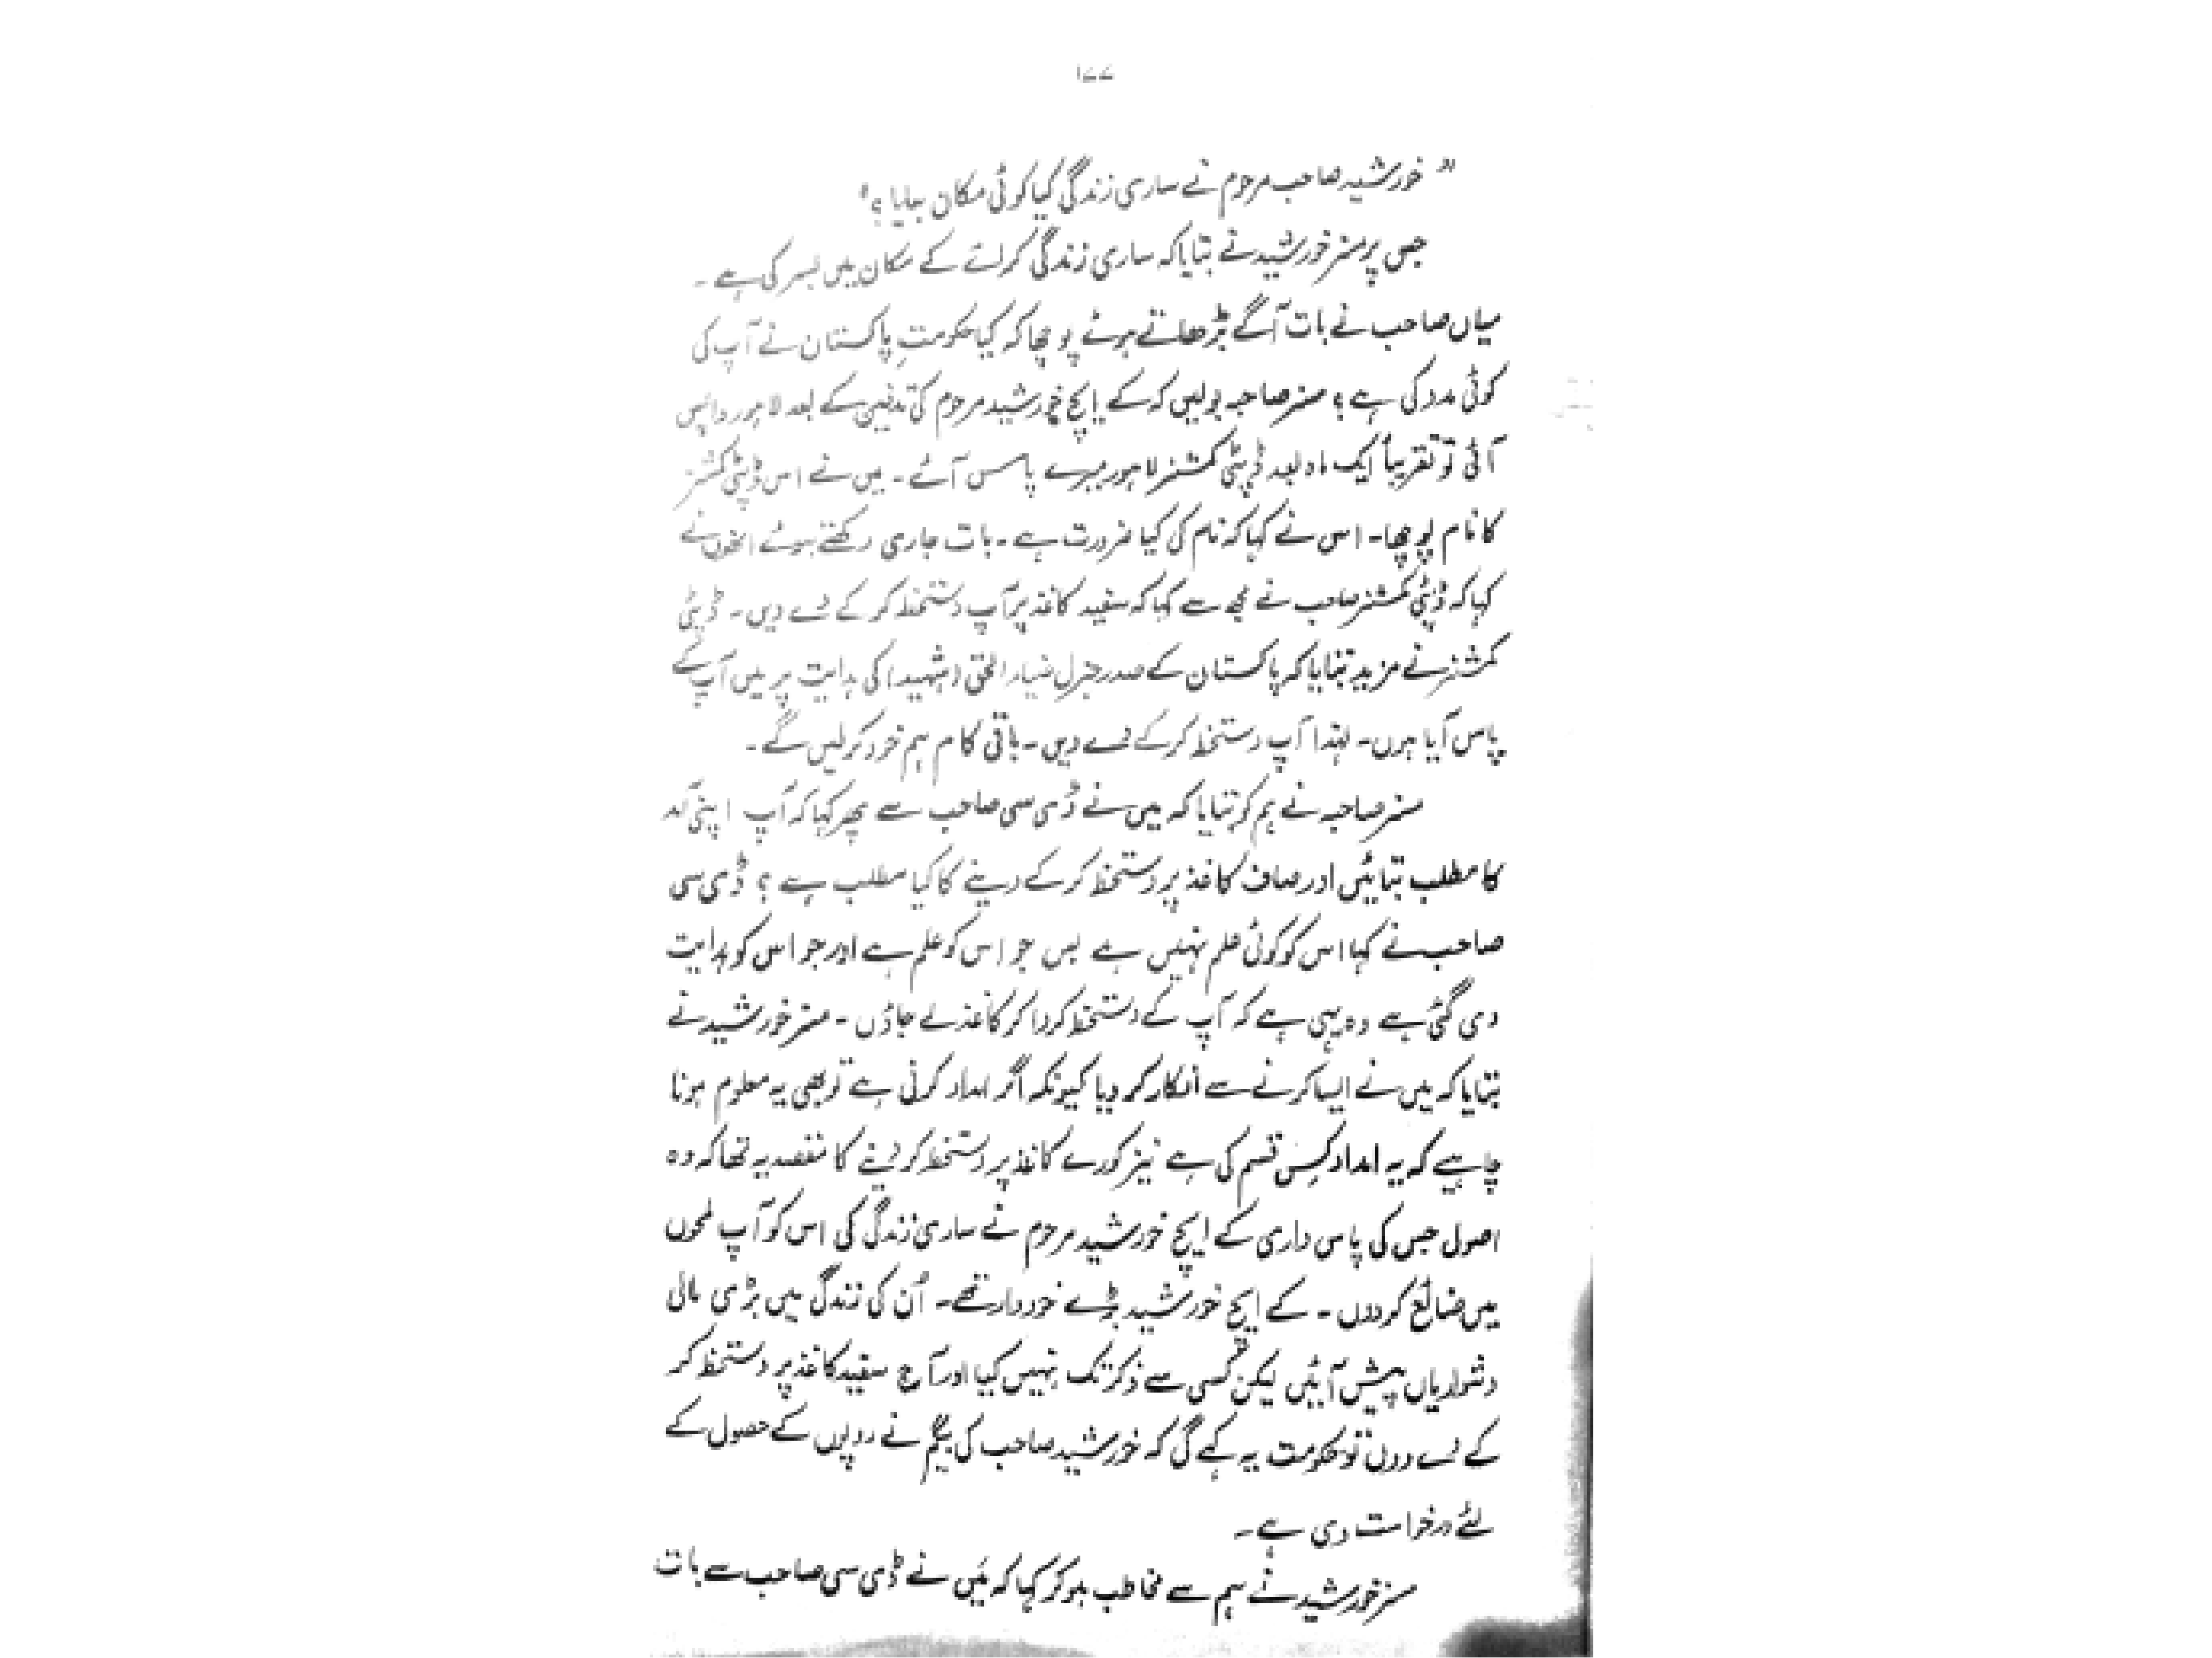 ۱۷۷
"خورشید صاحب مرحوم نے ساری زندگی کیا کوئی مکان بنایا؟"
جس پر مسز خورشید نے بتایا کہ ساری زندگی کرائے کے مکان میں بسر کی ہے۔
میاں صاحب نے بات آگے بڑھاتے ہوئے پوچھا کہ کیا حکومتِ پاکستان نے آپ کی
کوئی مدد کی ہے؟ مسز صاحبہ بولیں کہ کے ایچ خورشید مرحوم کی تدفین کے بعد لاہور واپس
آئی تو تقریباً ایک ماہ بعد ڈپٹی کمشنر لاہور میرے پاس آئے۔ میں نے اس ڈپٹی کمشنر
کا نام پوچھا۔ اس نے کہا کہ نام کی کیا ضرورت ہے۔ بات جاری رکھتے ہوئے انھوں نے
کہا کہ ڈپٹی کمشنر صاحب نے مجھے سے کہا کہ سفید کاغذ پر آپ دستخط کر کے دے دیں۔ ڈپٹی
کمشنر نے مزید بتایا کہ پاکستان کے صدر جنرل ضیاء الحق (شہید) کی ہدایت پر میں آپ کے
پاس آیا ہوں۔ لہٰذا آپ دستخط کر کے دے دیں۔ باقی کام ہم خود کر لیں گے۔
مسز صاحبہ نے ہم کو بتایا کہ میں نے ڈی سی صاحب سے پھر کہا کہ آپ اپنی آمد
کا مطلب بتائیں اور صاف کاغذ پر دستخط کر کے دینے کا کیا مطلب ہے؟ ڈی سی
صاحب نے کہا اس کو کوئی علم نہیں ہے بس جو اس کو علم ہے اور جو اس کو ہدایت
دی گئی ہے وہ یہی ہے کہ آپ کے دستخط کروا کر کاغذ لے جاؤں۔ مسز خورشید نے
بتایا کہ میں نے ایسا کرنے سے انکار کر دیا کیونکہ اگر امداد کرنی ہے تو بھی یہ معلوم ہونا
چاہیے کہ یہ امداد کس قسم کی ہے نیز کورے کاغذ پر دستخط کر دینے کا مقصد یہ تھا کہ وہ
اصول جس کی پاس داری کے ایچ خورشید مرحوم نے ساری زندگی کی اس کو آپ لمحوں
میں ضائع کر دوں۔ کے ایچ خورشید بڑے خوددار تھے۔ اُن کی زندگی میں بڑی مالی
دشواریاں پیش آئیں لیکن کسی سے ذکر تک نہیں کیا اور آج سفید کاغذ پر دستخط کر
کے دے دوں تو حکومت یہ کہے گی کہ خورشید صاحب کی بیگم نے روپوں کے حصول کے
لئے درخواست دی ہے۔
مسز خورشید نے ہم سے مخاطب ہو کر کہا کہ میَں نے ڈی سی صاحب سے بات